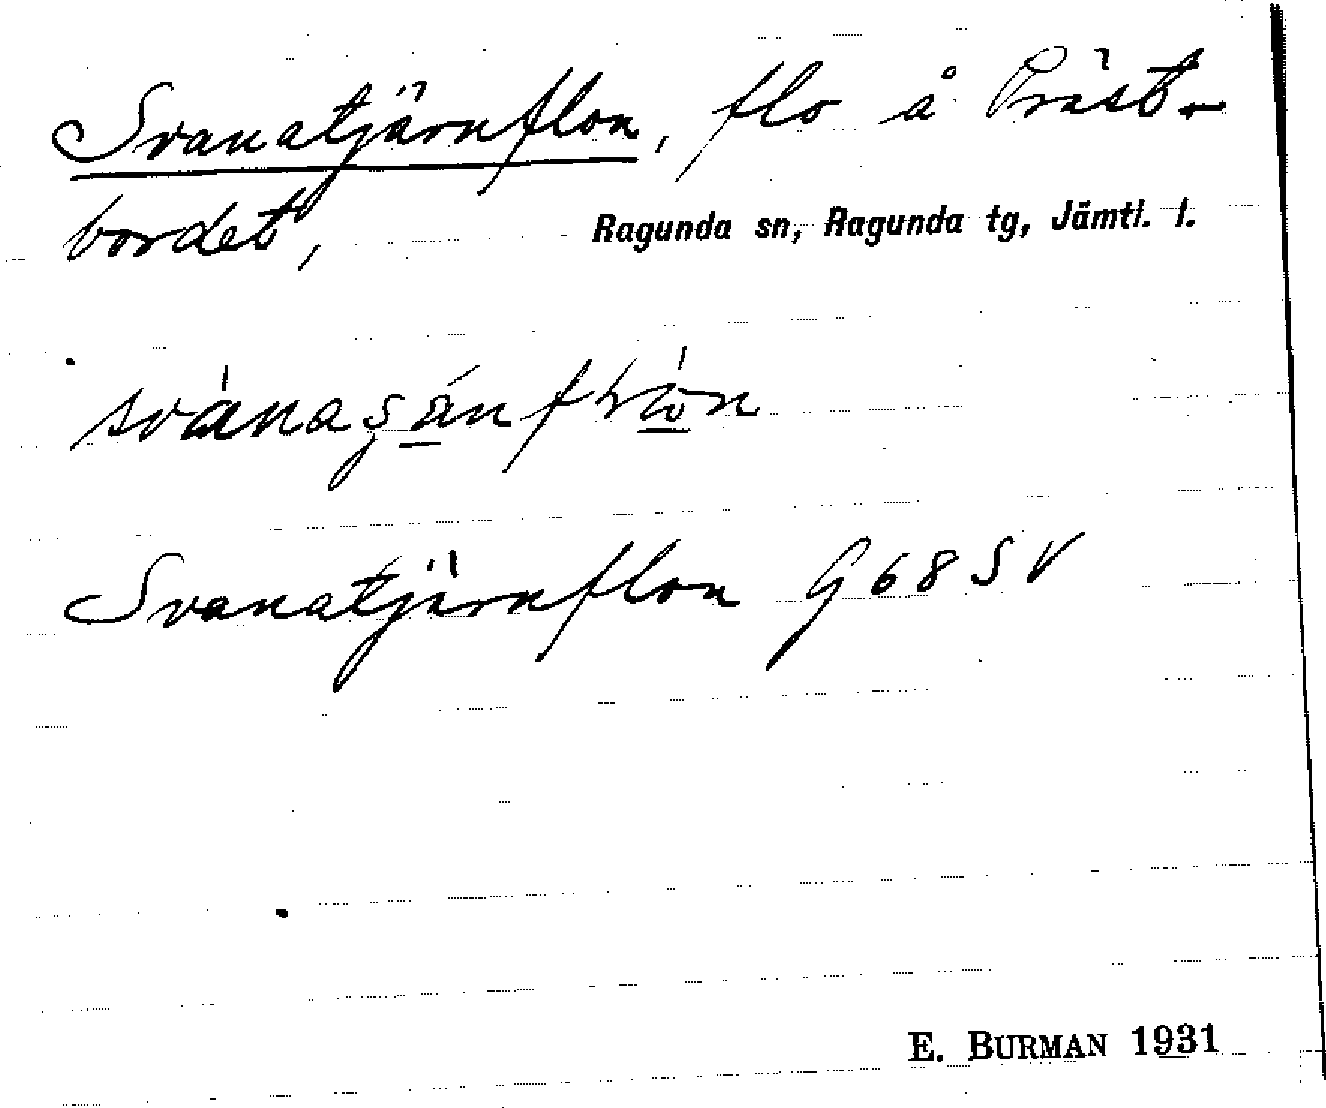 Svanatjärnflon, flo å Präst-
bordet,
Ragunda sn, Ragunda tg, Jämtl. l.
Svanatjärnflon G68SV
E. BURMAN 1931